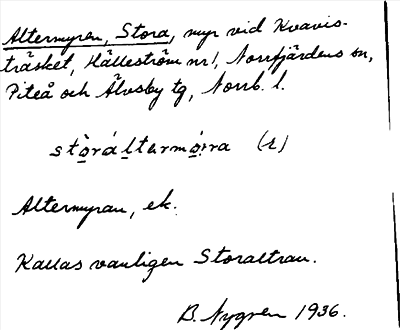 Altermyran, Stora, myr vid Kvavis-
träsket, Hälleström nr 1, Norrfjärdens sn,
Piteå och Älvsby tg, Norrb. l.
stòráltermó̤rra (r)
Altermyran, ek.
Kallas vanligen Storaltran.
B. Nygren 1936.